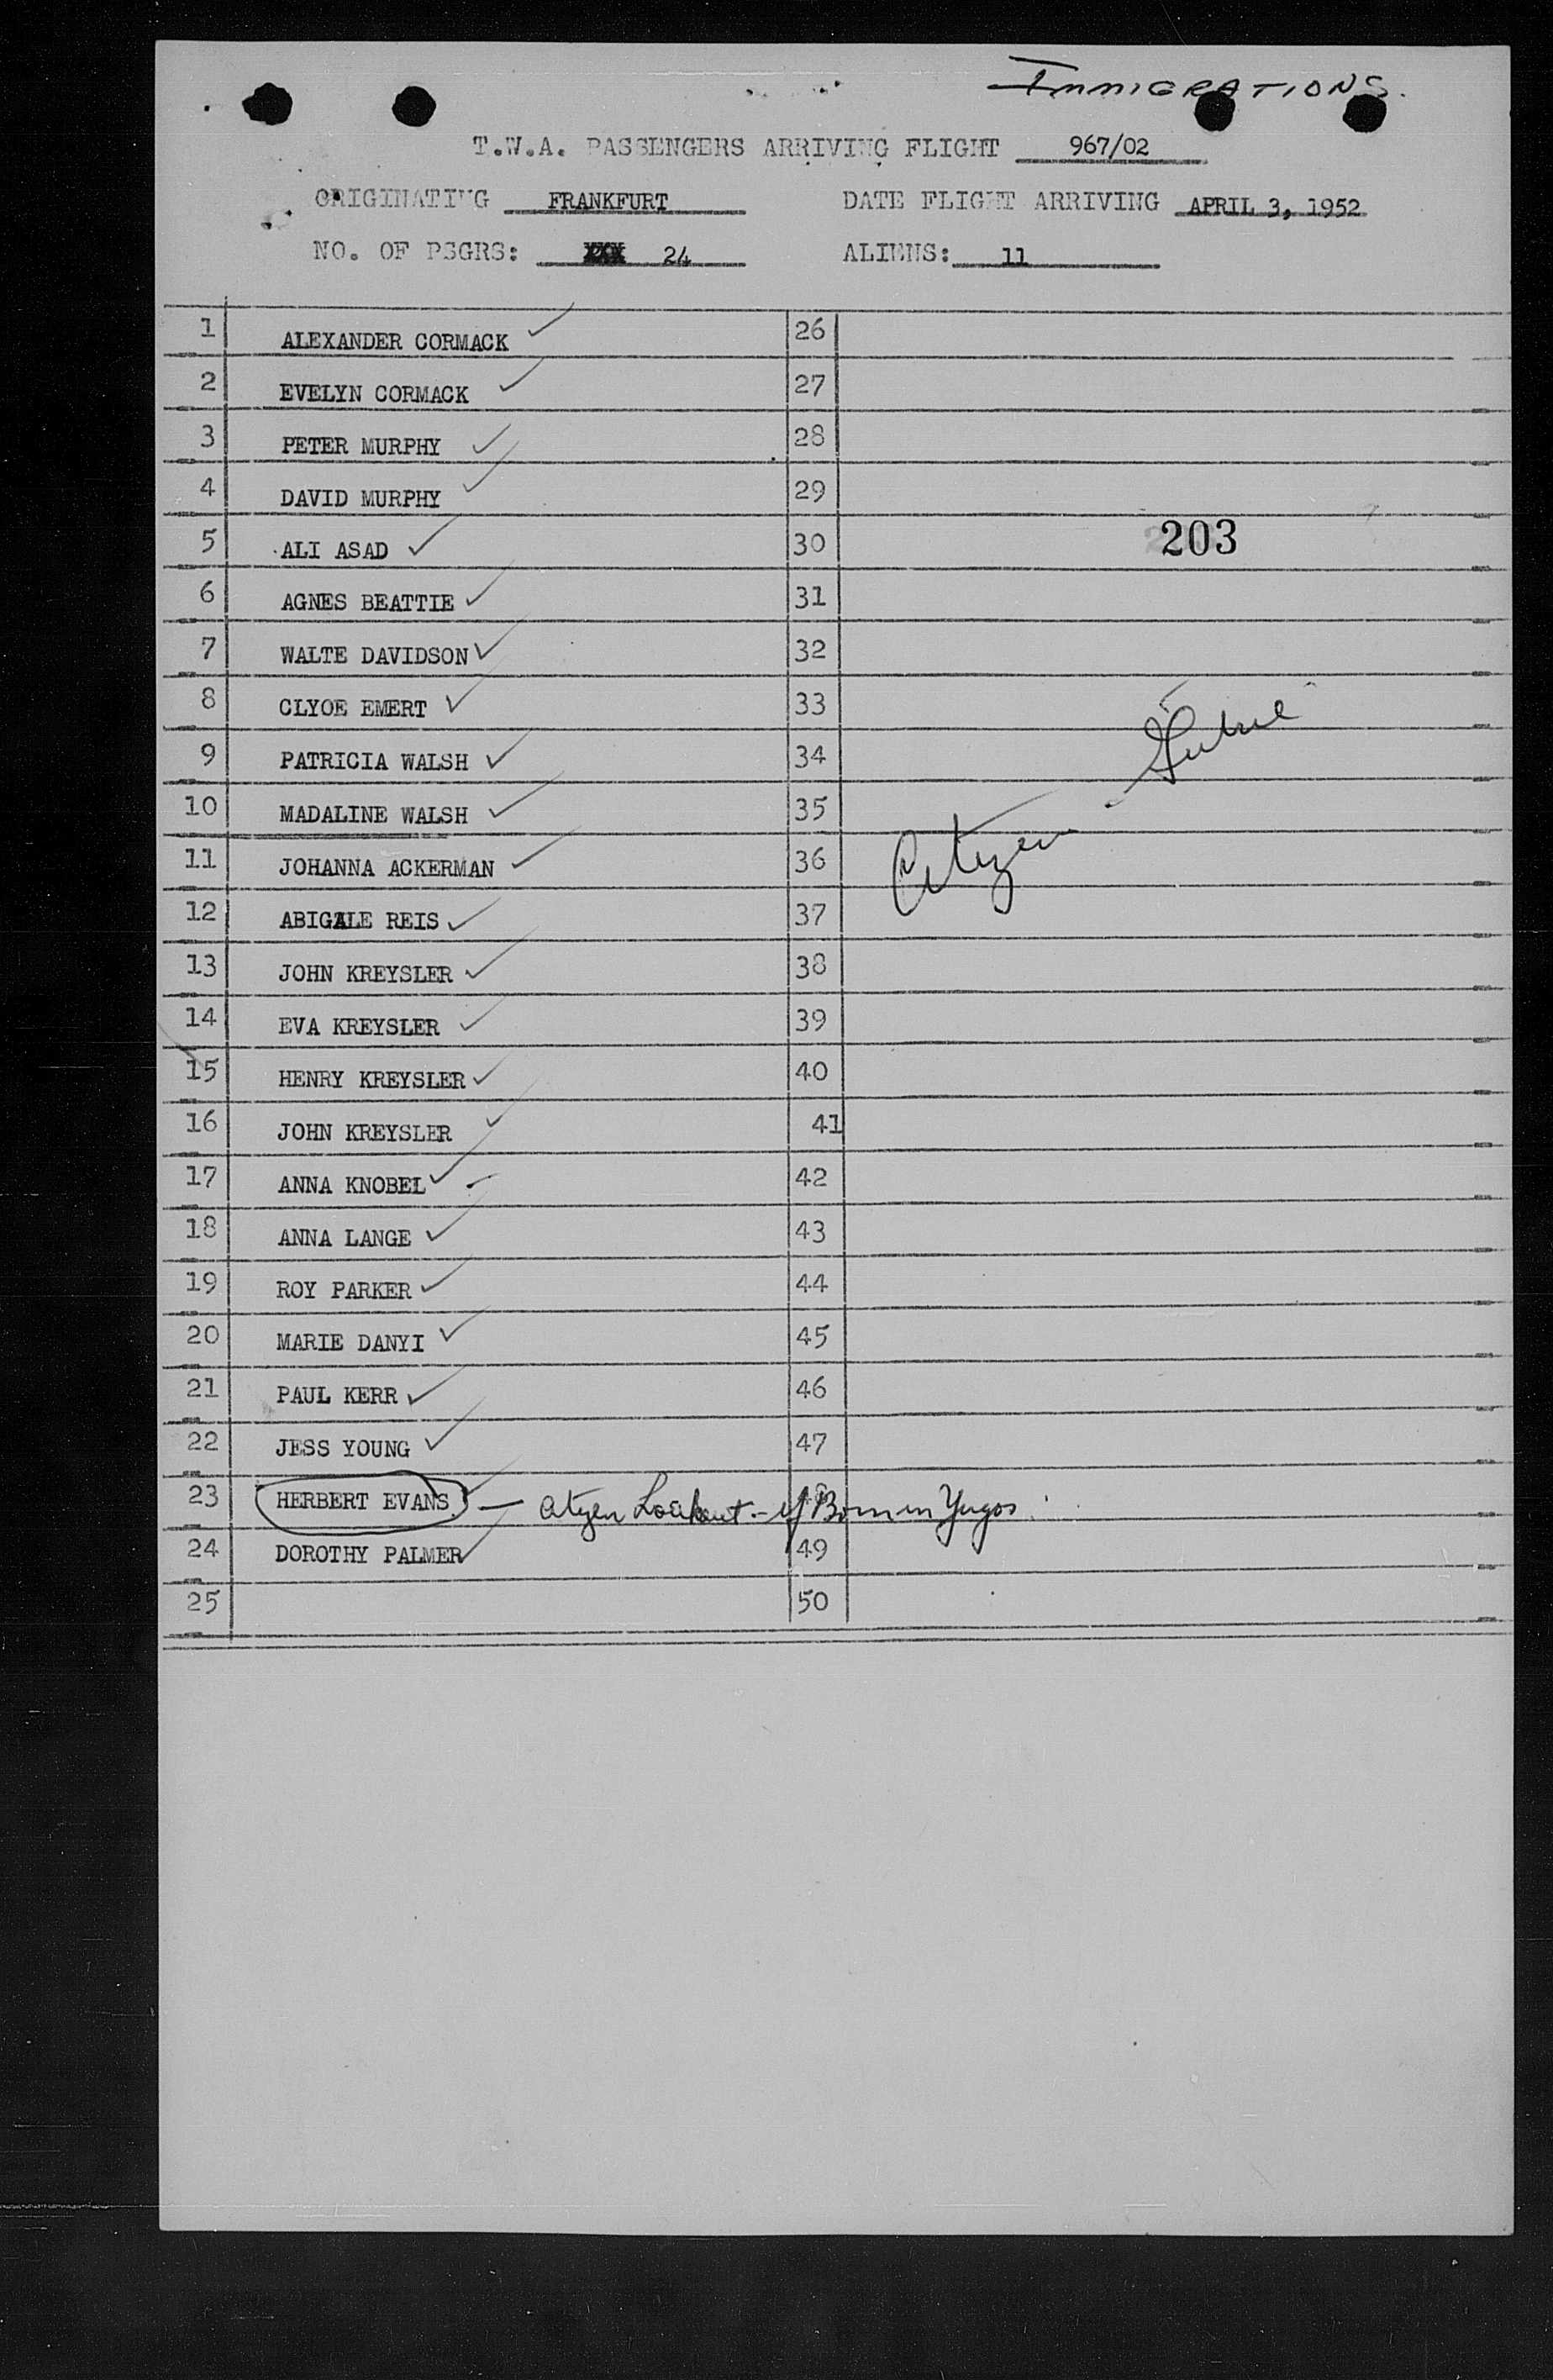 IMMIGRATIONS.
T.W.A. PASSENGERS ARRIVING FLIGHT 967/02
ORIGINATING FRANKFURT DATE FLIGHT ARRIVING APRIL 3, 1952
NO. OF PSGRS: XXX 24 ALIENS: 11
1 ALEXANDER CORMACK 26
2 EVELYN CORMACK 27
3 PETER MURPHY 28
4 DAVID MURPHY 29
5 ALI ASAD 30 203
6 AGNES BEATTIE 31
7 WALTE DAVIDSON 32
8 CLYOE EMERT 33
9 PATRICIA WALSH 34
10 MADALINE WALSH 35
11 JOHANNA ACKERMAN 36 Citizen
12 ABIGALE REIS 37
13 JOHN KREYSLER 38
14 EVA KREYSLER 39
15 HENRY KREYSLER 40
16 JOHN KREYSLER 41
17 ANNA KNOBEL 42
18 ANNA LANGE 43
19 ROY PARKER 44
20 MARIE DANYI 45
21 PAUL KERR 46
22 JESS YOUNG 47
23 HERBERT EVANS — Citizen Lookout - if Born in Yugos. 48
24 DOROTHY PALMER 49
25 50